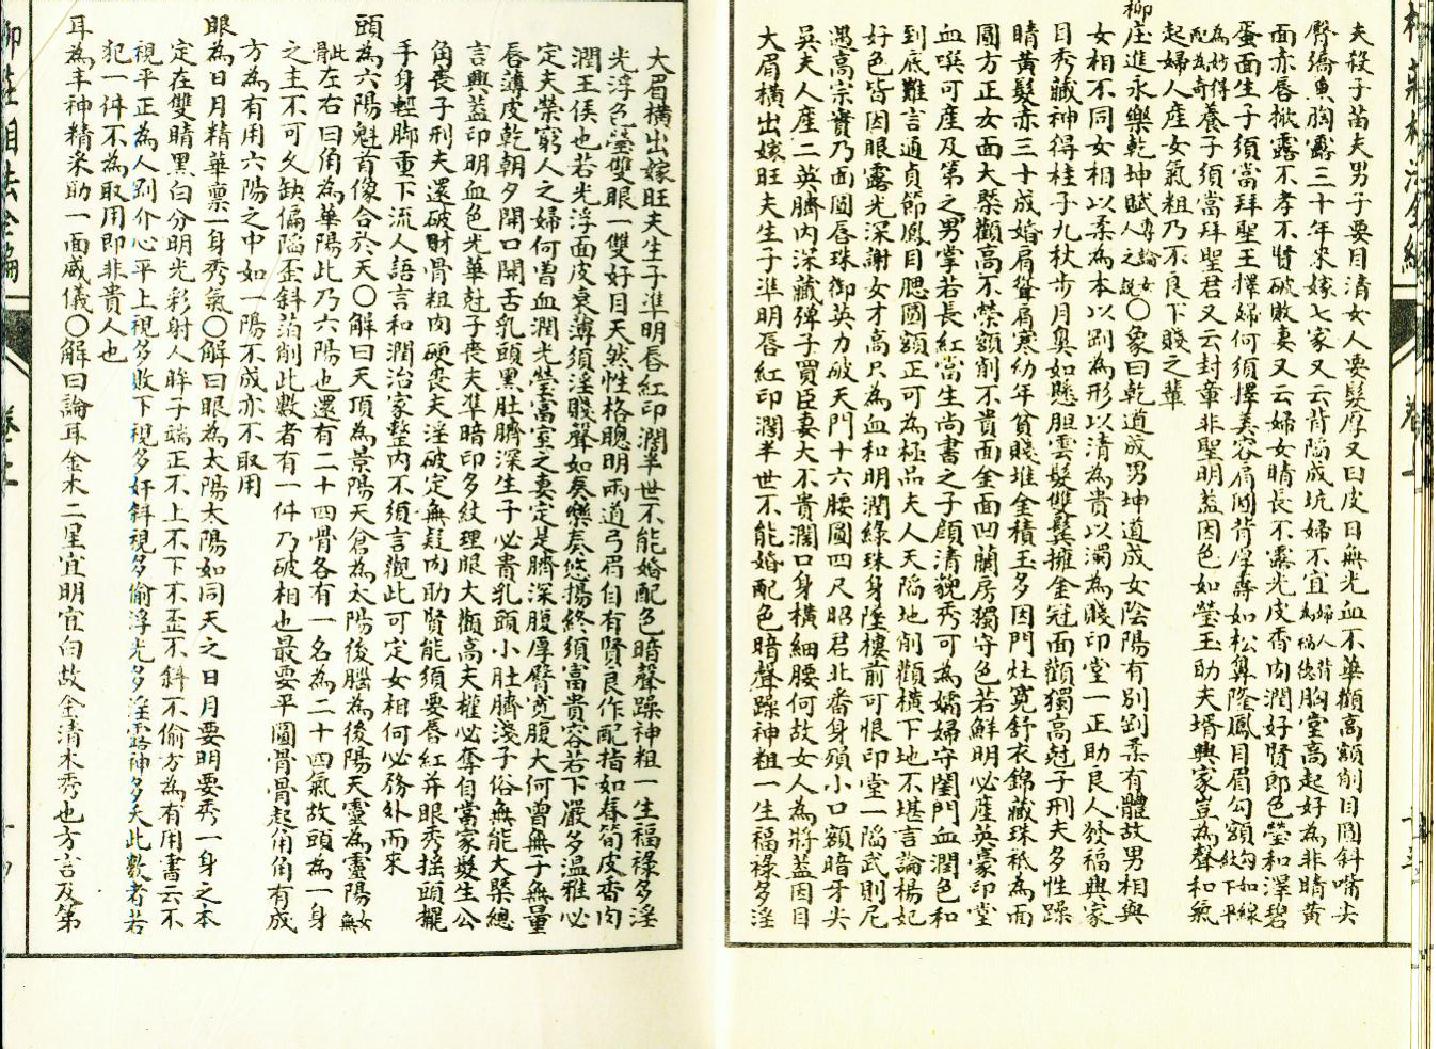 夫殺子苗夫男子要目清女人要髮厚又曰皮日無光血不華顴高額削目圓斜嘴尖
臀蹻魚胸露三十年來嫁七家又云背陷成坑婦不宜婦人背為福德胸堂高起好為非睛黃
面赤唇掀露不孝不賢破敗妻又云婦女睛長不露光皮香肉潤好賢郎色瑩和澤碧
蛋面生子須當拜聖王擇婦何須擇美容肩闊背厚壽如松鼻隆鳳目眉勾額下平如線
為妙得配為奇養子須當拜聖君又云封章非聖明蓋因色如瑩玉助夫壻興家豈為聲和氣
起婦人產女氣粗乃不良下賤之輩
柳庄進永樂乾坤賦專論女人之說〇象曰乾道成男坤道成女陰陽有別剛柔有體故男相與
女相不同女相以柔為本以剛為形以清為貴以濁為賤印堂一正助良人發福興家
目秀藏神得桂子九秋步月奧如懸胆雲髮雙鬢擁金冠面顴獨高尅子刑夫多性躁
睛黃髮赤三十成婚肩聳肩寒幼年貧賤堆金積玉多因門灶寬舒衣錦藏珠衹為面
圓方正女面大槩顴高不榮額削不貴面金面凹蘭房獨守色若鮮明必產英豪印堂
血噀可產及第之男掌若長紅當生尚書之子顏清貌秀可為孀婦守閨門血潤色和
到底難言道貞節鳳目腮圓額正可為極品夫人天陷地削顴橫下地不堪言論楊妃
好色皆因眼露光深謝女才高只為血和明潤綠珠身墜樓前可恨印堂一陷武則尼
遇高宗實乃面圓唇珠御英力破天門十六腰圓四尺昭君北番身殞小口額暗牙尖
吳夫人產二英臍內深藏彈子買臣妻大不貴濶口身橫細腰何故女人為將蓋因目
大眉橫出嫁旺夫生子準明唇紅印潤半世不能婚配色暗聲躁神粗一生福祿多淫
大眉橫出嫁旺夫生子準明唇紅印潤半世不能婚配色暗聲躁神粗一生福祿多淫
光浮色瑩雙眼一雙好目天然性格聰明兩道弓眉自有賢良作配指如春筍皮香肉
潤王侯也若光浮面皮哀薄須淫賤聲如奏樂奏悠揚終須富貴容若下嚴多温雅必
定夫榮窮人之婦何曾血潤光瑩富室之妻定是臍深腹厚臀寬腹大何曾無子無量
唇薄皮乾朝夕開口開舌乳頭黑肚臍深生子必貴乳頭小肚臍淺子俗無能大槩總
言興蓋印明血色光華尅子喪夫準暗印多紋理眼大顴高夫權必奪自當家髮生公
角喪子刑夫還破財骨粗肉硬喪夫淫破定無疑內助賢能須要唇紅并眼秀搖頭擺
手身輕脚重下流人語言和潤治家整內不須言觀此可定女相何必務外而來
頭為六陽魁首像合於天〇解曰天頂為景陽天倉為太陽後腦為後陽天靈為靈陽女無
此骷左右曰角為華陽此乃六陽也還有二十四骨各有一名為二十四氣故頭為一身
之主不可欠缺偏陷歪斜萡削此數者有一件乃破相也最要平圓骨骨起角角有成
方為有用六陽之中如一陽不成亦不取用
眼為日月精華禀一身秀氣〇解曰眼為太陽太陽如同天之日月要明要秀一身之本
定在雙睛黑白分明光彩射人眸子端正不上不下不歪不斜不偷方為有用書云不
視平正為人剛介心平上視多敗下視多奸斜視多偷浮光多淫露神多夭此數者若
犯一件不為取用即非貴人也
耳為丰神精采助一面威儀〇解曰論耳金木二星宜明宜白故金清木秀也方言及第